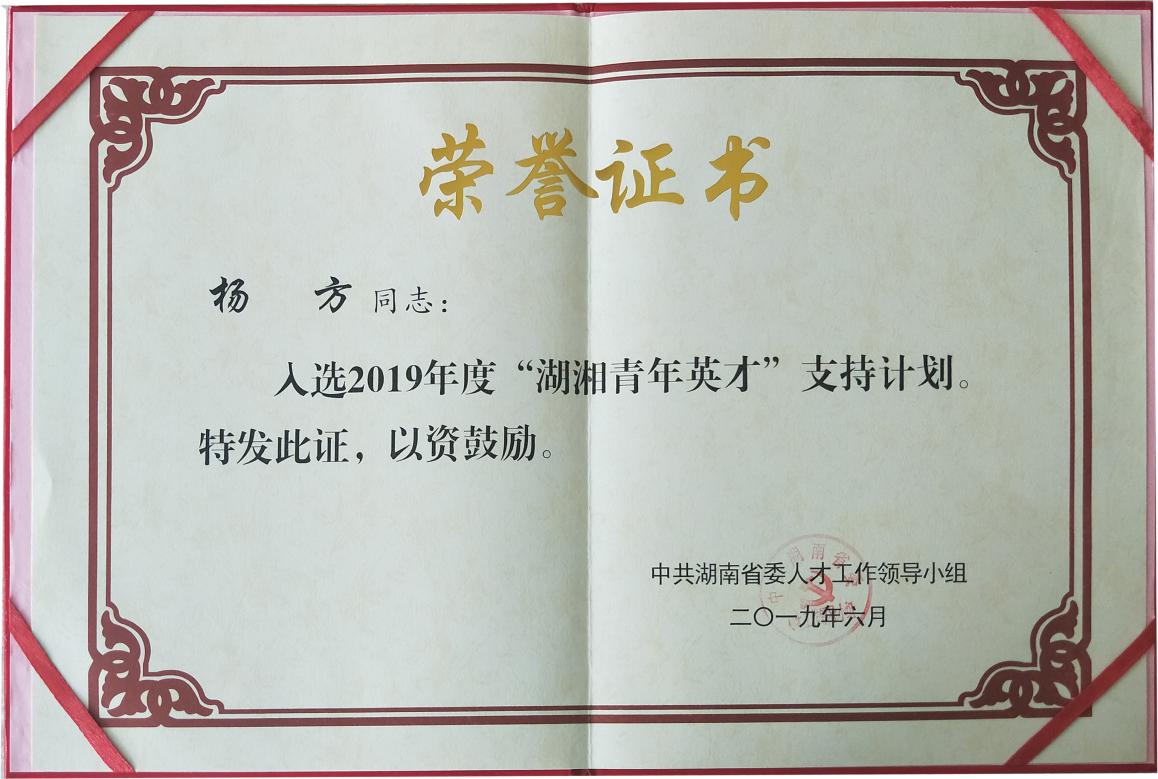 荣誉证书
杨 方同志：
入选2019年度“湖湘青年英才”支持计划。
特发此证，以资鼓励。
中共湖南省委人才工作领导小组
二〇一九年六月